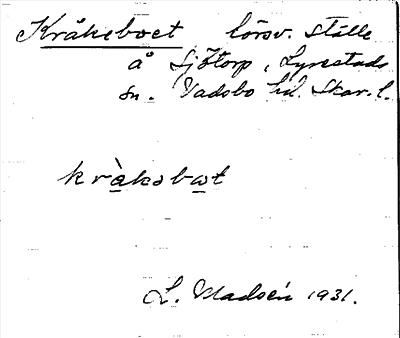 Kråkeboet försv. ställe
å Sjötorp, Lyrestads
sn. Vadsbo hd. Skar. l.
kràkəbωt
L. Madsén 1931.